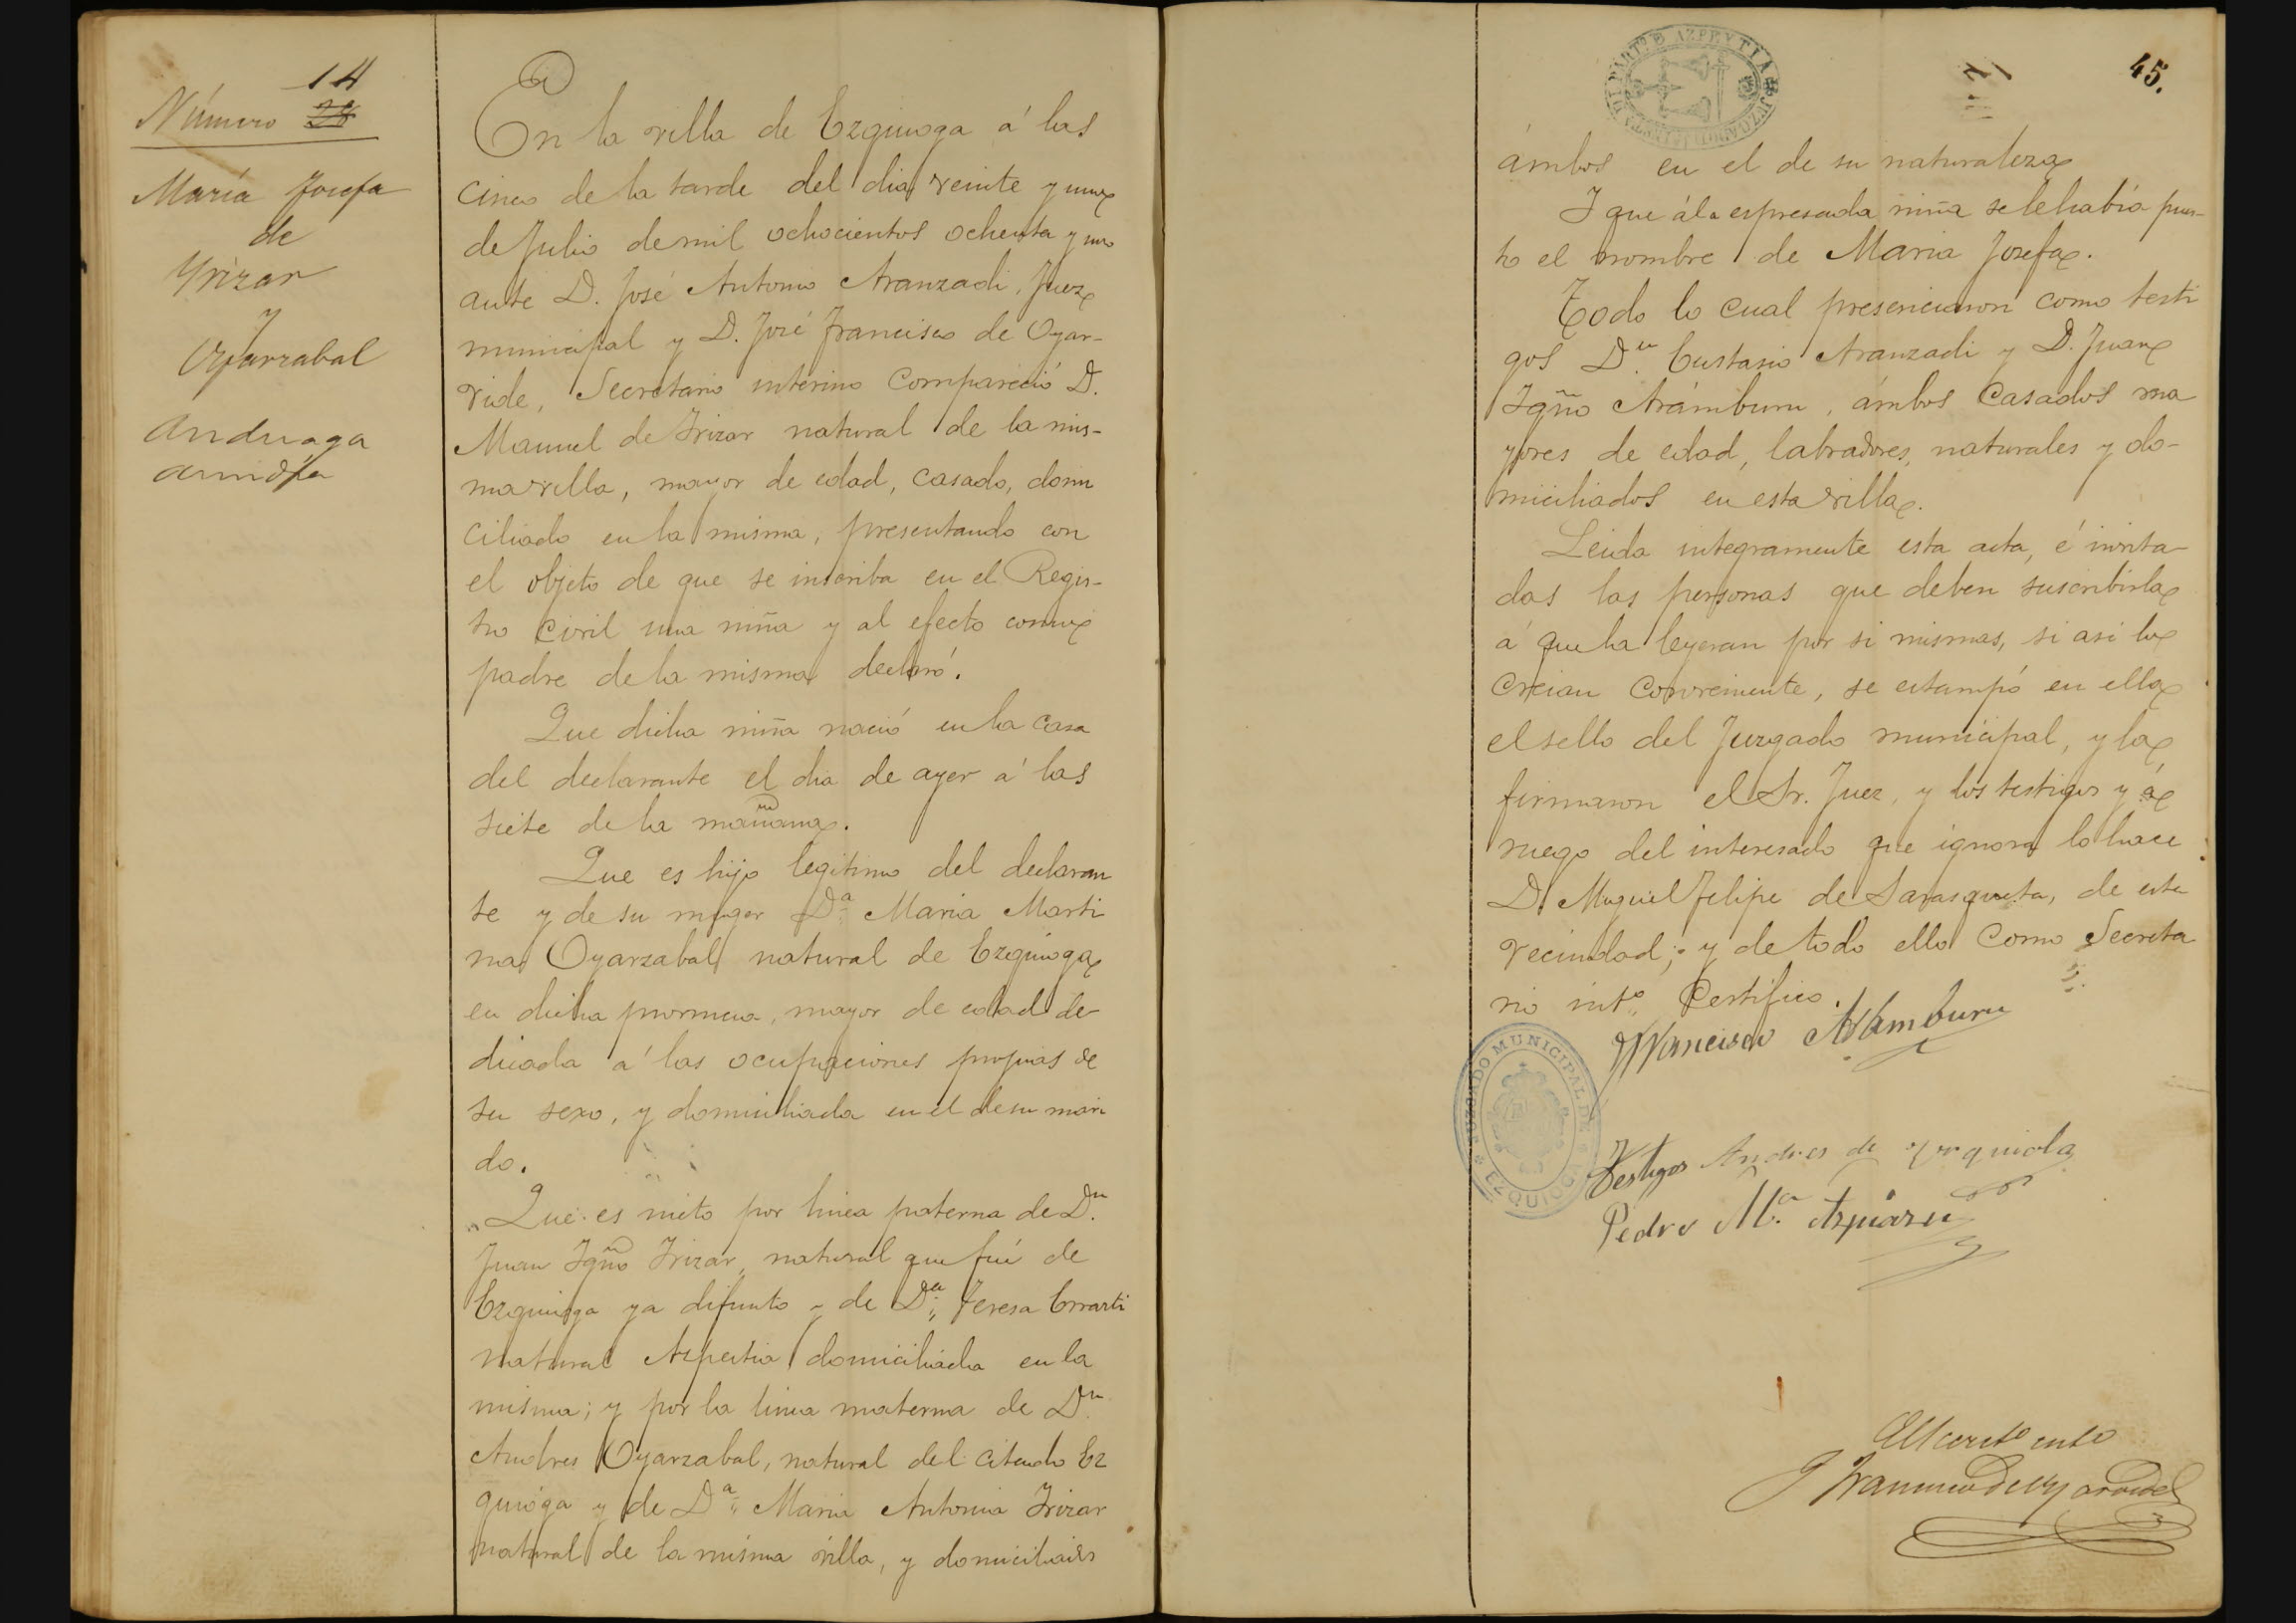 14
Número 28
María Josefa
de
Yrizar
y
Oyarzabal
Anduaga
En la villa de Ezquioga á las
cinco de la tarde del dia veinte y uno
de Julio de mil ochocientos ochenta y uno
ante D. José Antonio Aranzadi, Juez
municipal y D. José Francisco de Oyar-
vide, Secretario interino compareció D.
Manuel de Irizar natural de la mis-
ma villa, mayor de edad, casado, domi
ciliado en la misma, presentando con
el objeto de que se inscriba en el Regis-
tro civil una niña y al efecto como
padre de la misma declaró.
Que dicha niña nació en la casa
del declarante el dia de ayer á las
siete de la mañana.
Que es hijo legitimo del declaran
te y de su muger Dª Maria Marti
na Oyarzabal natural de Ezquioga
en dicha provincia, mayor de edad de
dicada á las ocupaciones propias de
su sexo, y domiciliada en el de su mari
do.
Que es nieto por linea paterna de Dn.
Juan Ignº Irizar, natural que fué de
Ezquioga ya difunto y de Dª Teresa Errarti
natural Azpeitia domiciliada en la
misma; y por la linea materna de Dn
Andres Oyarzabal, natural del citado Ez
quioga y de Dª Maria Antonia Irizar
natural de la misma villa, y domiciliados
45.
PARTº DE AZPEYTIA
ámbos en el de su naturaleza
I que á la espresada niña se le habia pues-
to el nombre de Maria Josefa.
Todo lo cual presenciaron como testi
gos Dn Eustasio Aranzadi y D. Juan
Ignº Arámburu, ámbos casados ma
yores de edad, labradores, naturales y do-
miciliados en esta villa.
Leida integramente esta acta, é invita-
das las personas que deben suscribirla
á que la leyeran por si mismas, si asi lo
creian conveniente, se estampó en ella
el sello del Juzgado municipal, y la
firmaron el Sr. Juez, y los testigos y á
ruego del interesado que ignora lo hace
D. Miguel Felipe de Sarasqueta, de esta
vecindad; y de todo ello como Secreta
rio intº Certifico.
Francisco Aramburu
JUZGADO MUNICIPAL DE EZQUIOGA
Testigos Andres de Urquiola
Pedro Mª Azpiazu
El Secretº intº
J Francisco de Oyarvide